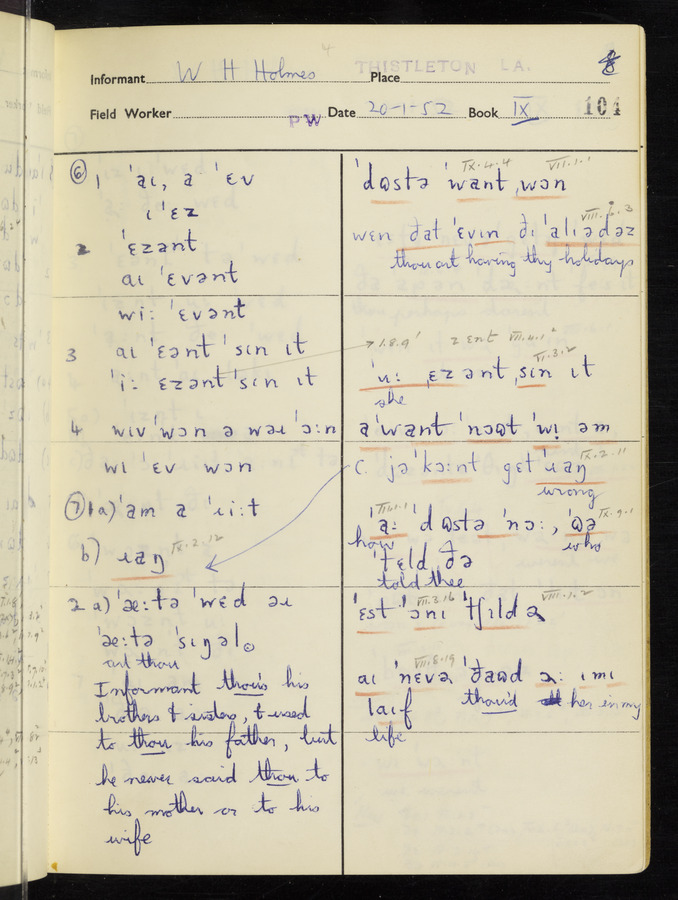 4
Informant W H Holmes Place THISTLETON LA.
Field Worker PW Date 20-1-52 Book IX 101
⑥ 1 ˈaɪ, a· ˈɛv
ɪ ˈɛz
2 ˈɛzənt
aɪ ˈɛvənt
wi: ˈɛvənt
3 aɪ ˈɛənt ˈsɪn ɪt
ˈi: ɛzənt ˈsɪn ɪt
4 wɪv ˈwɒn ə wəɪ ˈɔ:n
wɪ ˈɛv wɒn
⑦ 1 a) ˈam a ˈɹi:t
b) ɹaŋ IX.2.12
2 a) ˈæ:tə ˈwɛd əɪ
ˈæ:tə ˈsɪŋəl
art thou
Informant thou's his
brothers & sisters, & used
to thou his father, but
he never said thou to
his mother or to his
wife
IX.4.4 VII.1.1
ˈdɷstə ˈwant ˌwɒn
VIII.6.3
wɛn ðat ˈɛvɪn ði ˈalɪədəz
thou art having thy holidays
1.8.9 z ɛnt
VI.3.2
ˈu: ˌɛzənt ˌsɪn ɪt
she
aˈwant ˈnɔɷt ˈwɪ əm
c. jəˈkɔ:nt gɛt ˈɹaŋ IX.2.11
wrong
ˈa: ˈdɷstə ˈnɔ:, ˈɷə IX.9.1
how who
ˈtɛld ðə
told thee
VII.3.16 VIII.1.2
ˈɛst ˈɔnɪ ˈtʃɪldə
VII.8.19
aɪ ˈnɛvə ˈðaɷd ə: ɪmɪ
laɪf thou'd her in my
life